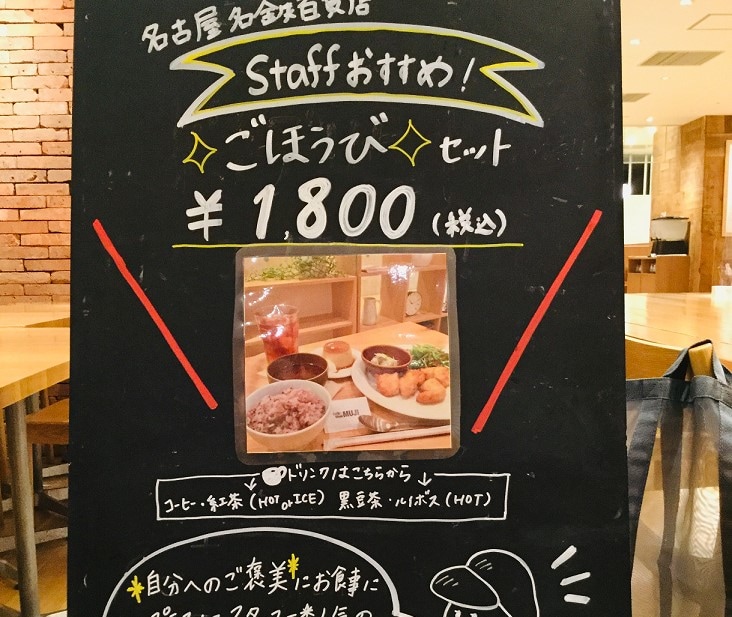 名古屋 名鉄百貨店
Staffおすすめ!
ごほうびセット
¥1,800(税込)
MUJI
ドリンクはこちらから
コーヒー・紅茶(HOT or ICE) 黒豆茶・ルイボス(HOT)
自分へのご褒美にお食事に